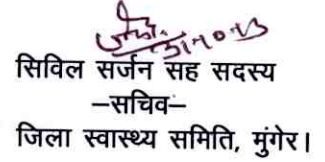 सिविल सर्जन सह सदस्य
–सचिव–
जिला स्वास्थ्य समिति, मुंगेर।